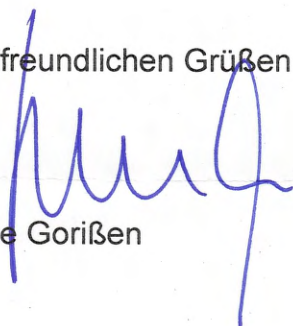 freundlichen Grüßen
e Gorißen